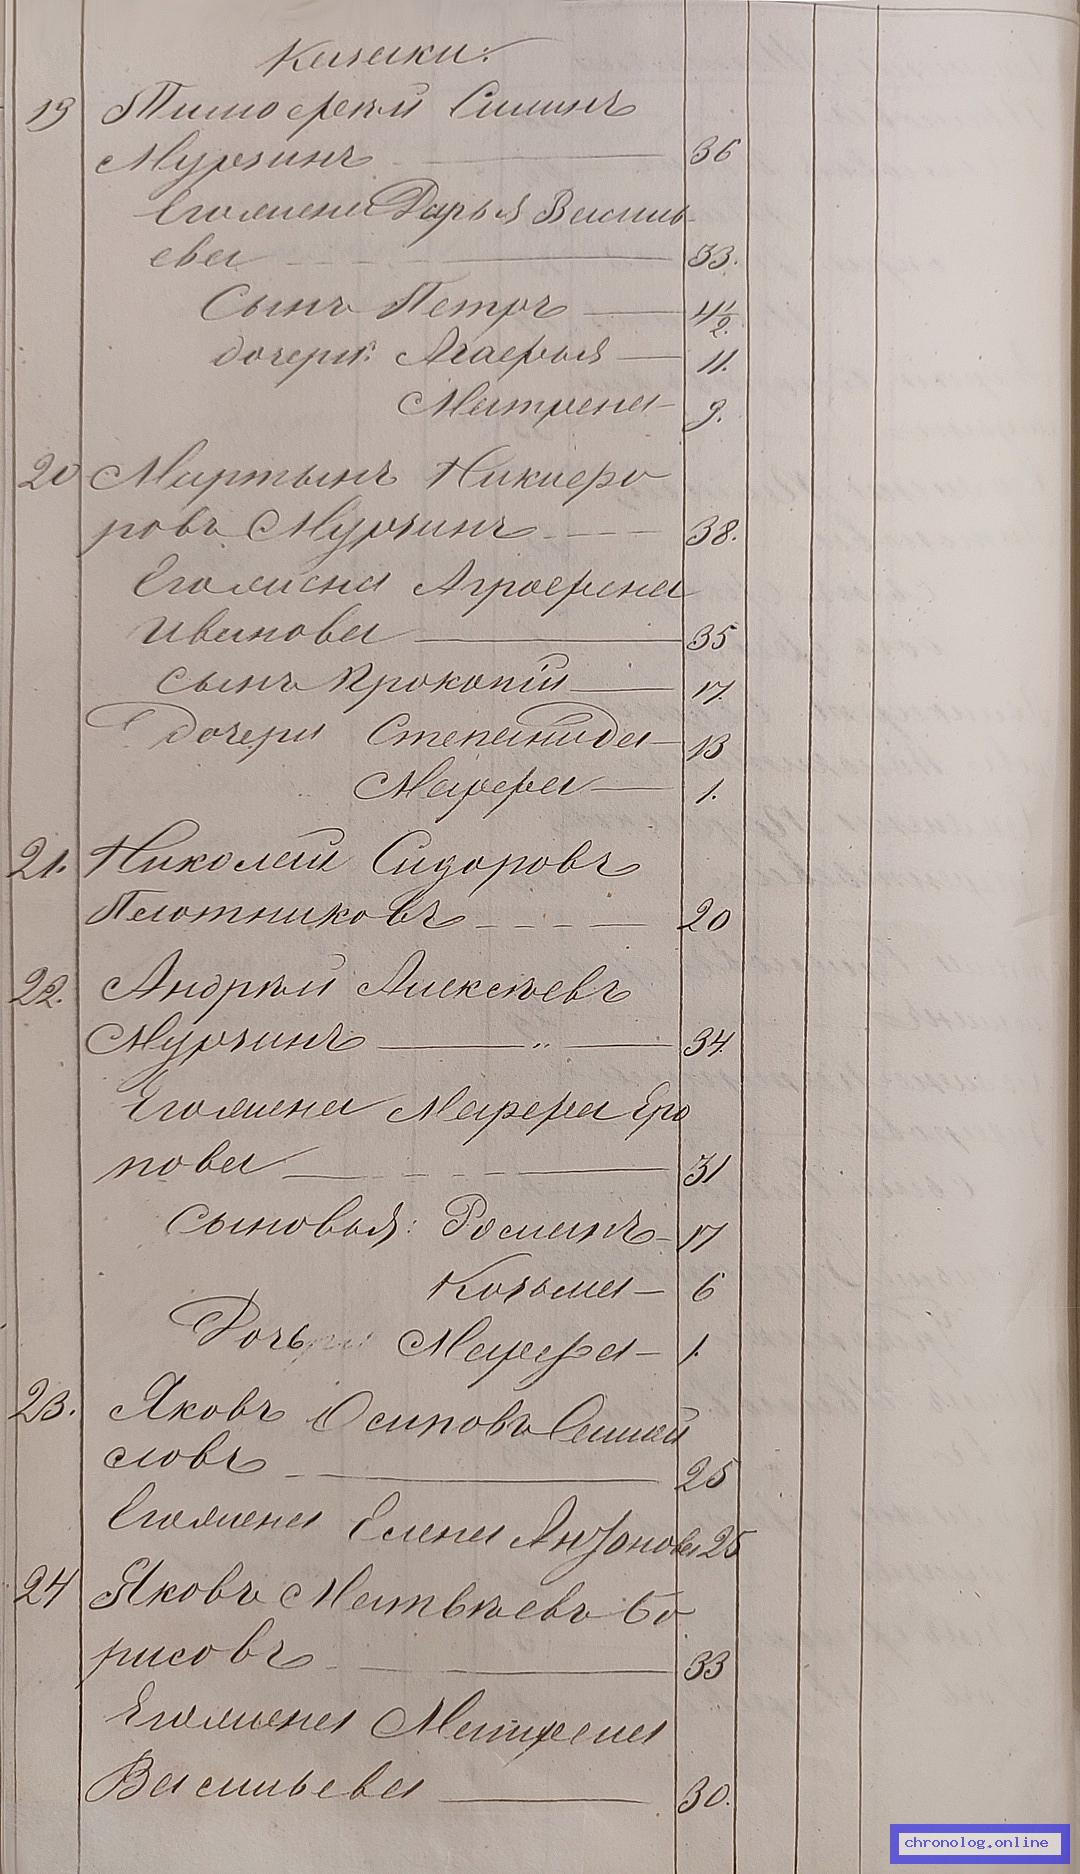 Казаки:
19 Тимофѣй Силинъ
Мурзинъ 36
Его жена Дарья Василь-
ева 33.
Сынъ Петръ 4 1/2.
дочери: Агафья 11.
Матрена 9.
20 Мартынъ Никифо
ровъ Мурзинъ 38.
Его жена Агрофена
Иванова 35
сынъ Прокопій 17.
Дочери Степанида 13
Марфа 1.
21. Николай Сидоровъ
Плотниковъ 20
22. Андрѣй Алексѣевъ
Мурзинъ „ 34.
Его жена Марфа Еро
пова 31
Сыновья: Романъ 17
Козьма 6
Дочь Марфа 1.
23. Яковъ Осиповъ
словъ 25
Его жена Елена Антонова 25
24 Яковъ Матвѣевъ Бо
рисовъ 33
Его жена Матрена
Васильева 30.
chronolog.online